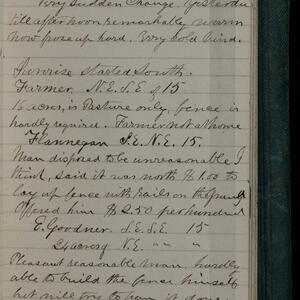 Very Sudden Change. Yesterday
till afternoon remarkably warm
now froze up hard. Very cold wind.
Sunrise started South.
Farmer. N.E. S.E of 15
16 acres, is Pasture only, fence is
hardly required. Farmer not at home
Flannegan S.E. N.E. 15.
Man disposed to be unreasonable I
think, said it was worth $1.00 to
lay up fence with rails on the
Offered him $2.50 per hundred
E. Goodner. S.E. S.E 15
24 acres N.E. " "
Pleasant reasonable man, hardly
able to build the fence himself
but will try to have it done